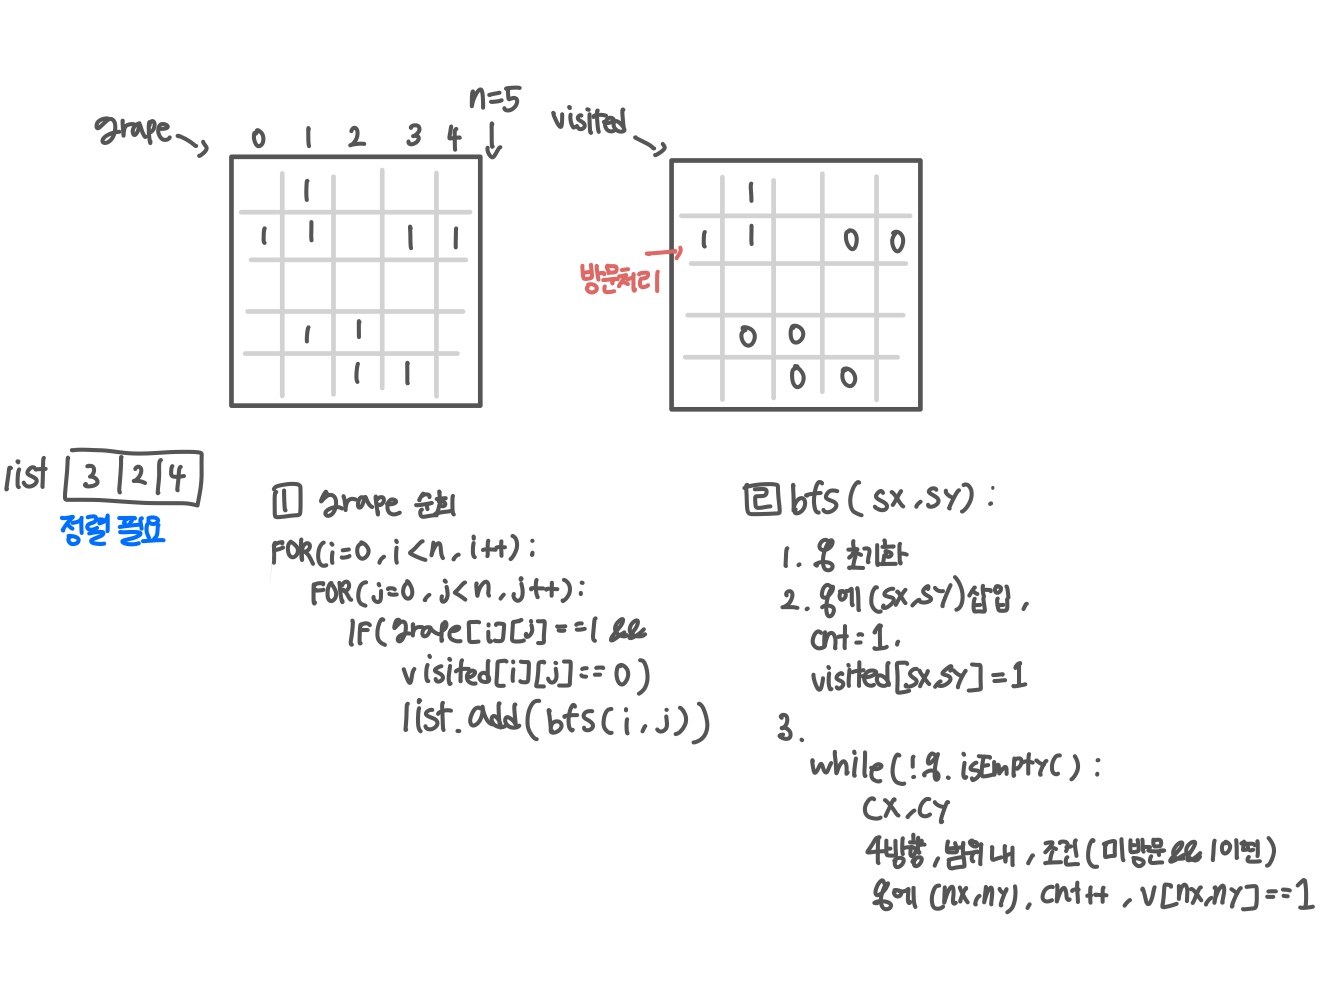 n=5
grape
0 1 2 3 4
visited
1
1 1 1 1
1 1
1 1
1
1 1 0 0
방문처리
0 0
0 0
list 3 2 4
정렬 필요
1 grape 순회
FOR(i=0, i<n, i++):
FOR(j=0, j<n, j++):
IF(grape[i][j]==1 &&
visited[i][j]==0)
list.add(bfs(i,j))
2 bfs(sx,sy):
1. q 초기화
2. q에 (sx,sy)삽입,
cnt=1.
visited[sx,sy]=1
3.
while(!q.isEmpty():
cx,cy
4방향, 범위 내, 조건(미방문&&1이면)
q에 (nx,ny), cnt++, v[nx,ny]==1